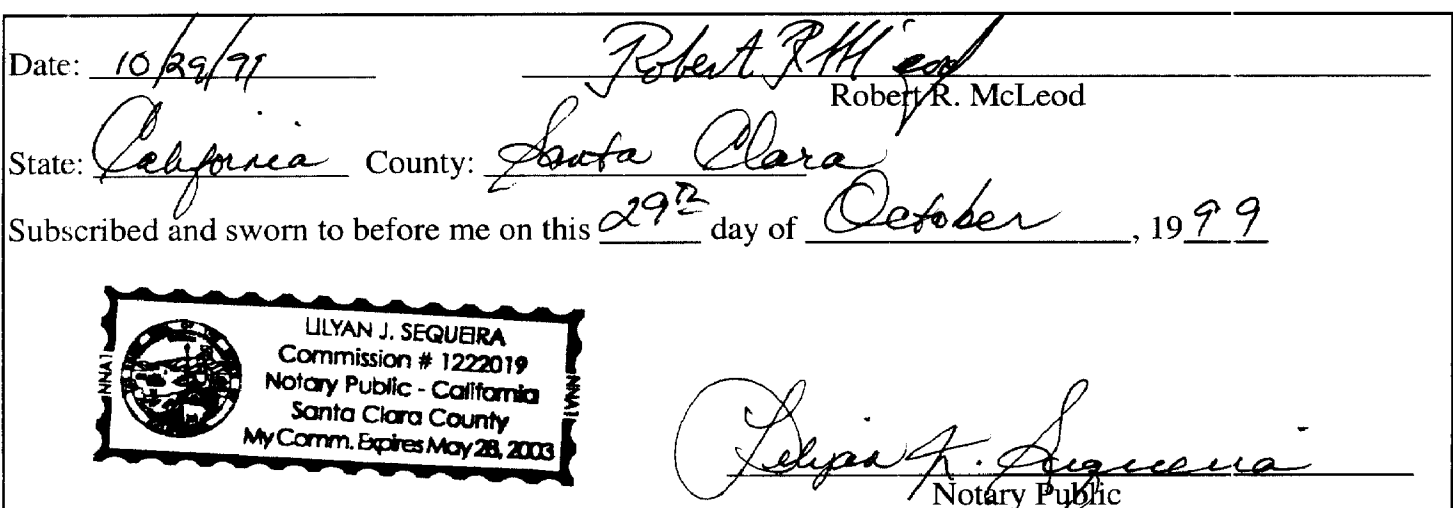 Date: 10/29/99 Robert R McLeod
Robert R. McLeod
State: California County: Santa Clara
Subscribed and sworn to before me on this 29th day of October, 1999
LILYAN J. SEQUEIRA
Commission # 1222019
Notary Public - California
Santa Clara County
My Comm. Expires May 28, 2003
NNA1
NNA1
Lilyan J. Sequeira
Notary Public